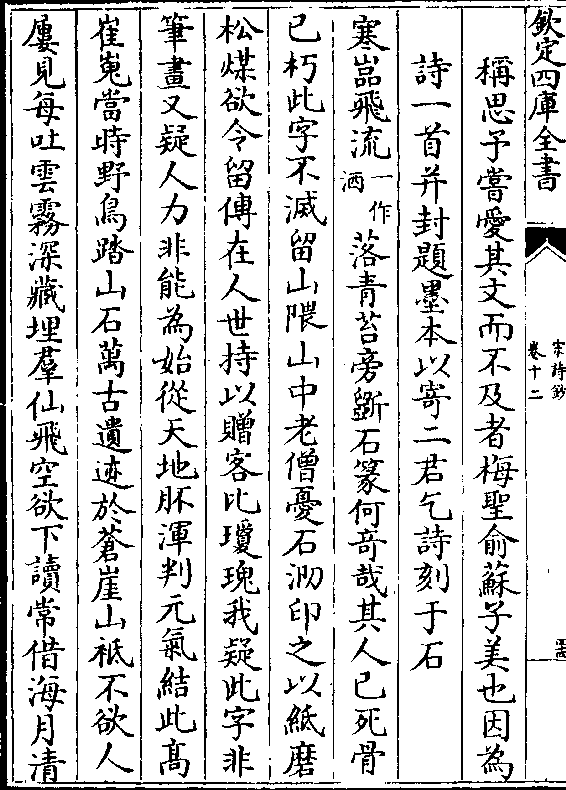 欽定四庫全書
宋詩鈔
卷十二
稱思予嘗愛其文而不及者梅聖俞蘇子美也因為
詩一首并封題墨本以寄二君乞詩刻于石
寒嵓飛流一作洒落青苔旁斵石篆何竒哉其人已死骨
已朽此字不滅留山隈山中老僧憂石泐印之以紙磨
松煤欲令留傳在人世持以贈客比瓊瑰我疑此字非
筆畫又疑人力非能為始從天地胚渾判元氣結此髙
崔嵬當時野鳥踏山石萬古遺迹於蒼崖山祗不欲人
屢見每吐雲霧深藏埋羣仙飛空欲下讀常借海月清